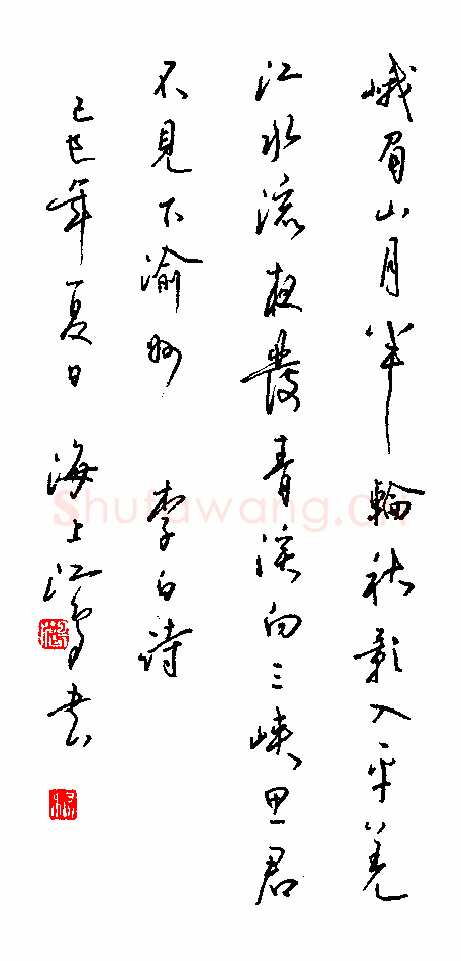 峨眉山月半輪秋影入平羌
江水流夜發青溪向三峽思君
不見下渝州 李白詩
己巳年夏日 海上江书
Shufawang.cn